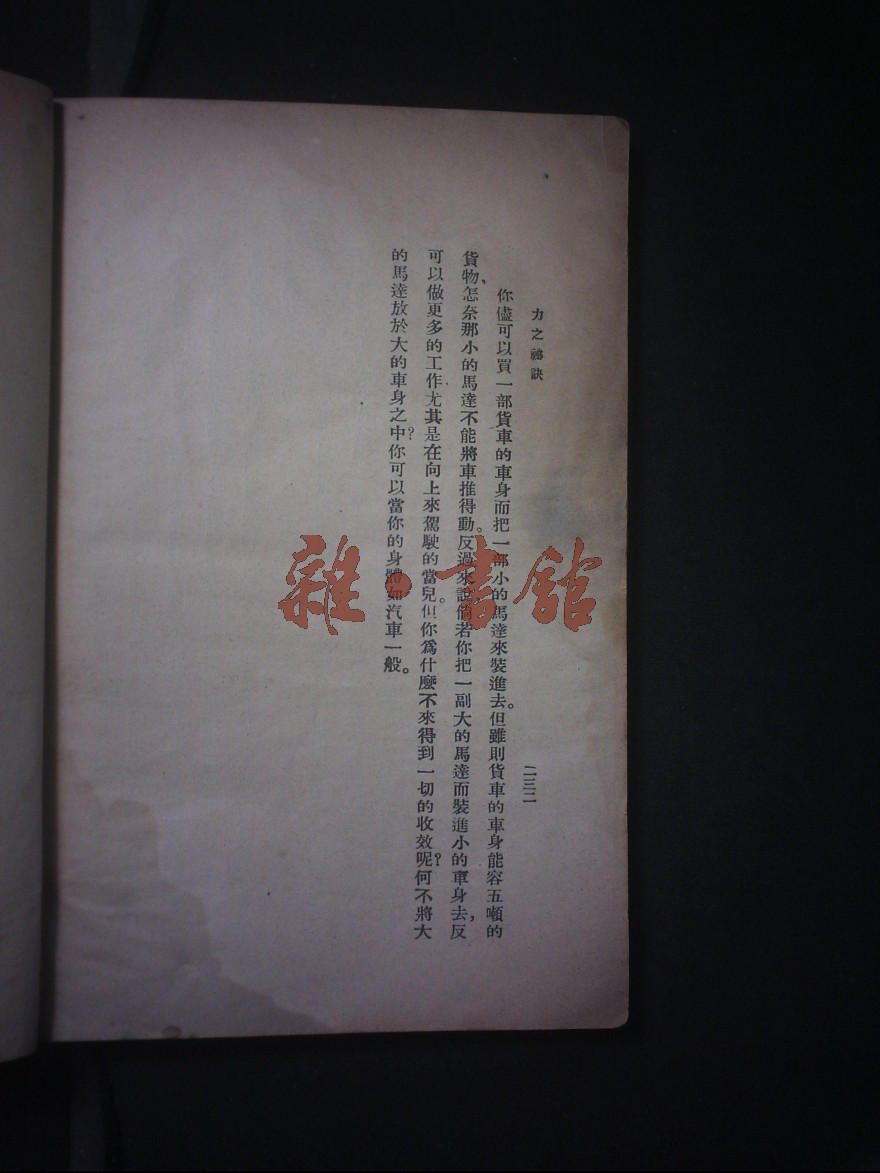 力之祕訣
二三二
你儘可以買一部貨車的車身而把一部小的馬達來裝進去。但雖則貨車的車身能容五噸的
貨物、怎奈那小的馬達不能將車推得動。反過來說倘若你把一副大的馬達而裝進小的車身去，反
可以做更多的工作尤其是在向上來駕駛的當兒。但你爲什麼不來得到一切的收效呢？何不將大
的馬達放於大的車身之中？你可以當你的身體如汽車一般。
雜·書館